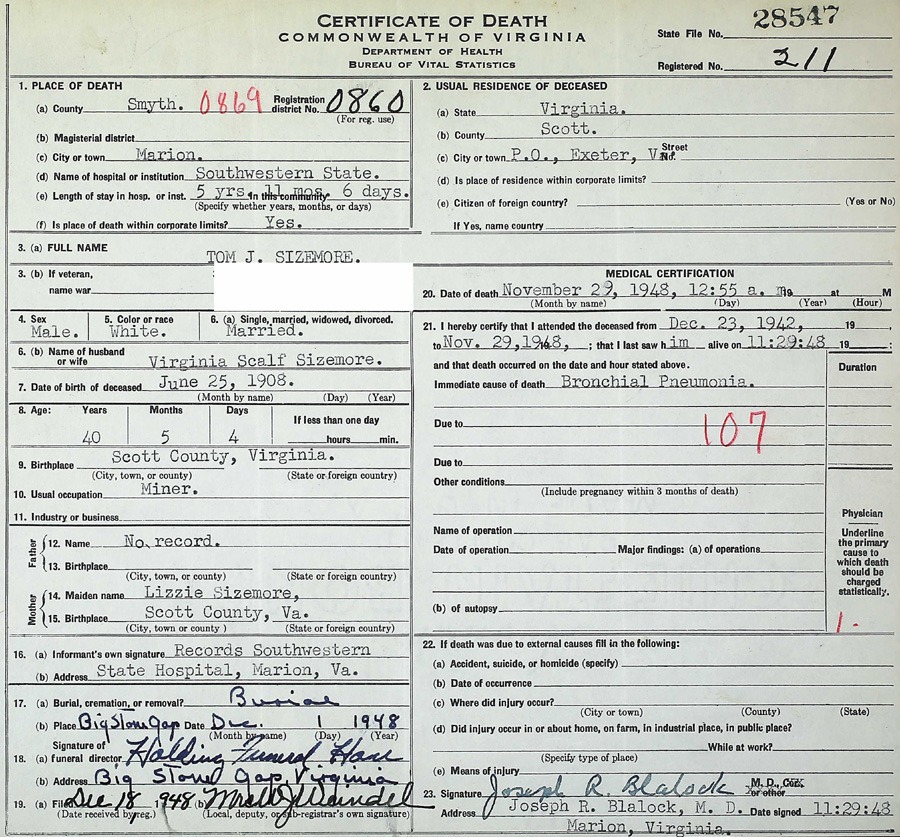 CERTIFICATE OF DEATH
COMMONWEALTH OF VIRGINIA
DEPARTMENT OF HEALTH
BUREAU OF VITAL STATISTICS
State File No. 28547
Registered No. 211
1. PLACE OF DEATH
(a) County Smyth. 0869 Registration district No. 0860
(For reg. use)
(b) Magisterial district
(c) City or town Marion.
(d) Name of hospital or institution Southwestern State.
(e) Length of stay in hosp. or inst. 5 yrs. 11 mos. 6 days. In this community
(Specify whether years, months, or days)
(f) Is place of death within corporate limits? Yes.
2. USUAL RESIDENCE OF DECEASED
(a) State Virginia.
(b) County Scott.
(c) City or town P.O., Exeter, Va. Street No.
(d) Is place of residence within corporate limits?
(e) Citizen of foreign country? (Yes or No)
If Yes, name country
3. (a) FULL NAME
TOM J. SIZEMORE.
3. (b) If veteran,
name war
4. Sex 5. Color or race 6. (a) Single, married, widowed, divorced.
Male. White. Married.
6. (b) Name of husband
or wife Virginia Scalf Sizemore.
7. Date of birth of deceased June 25, 1908.
(Month by name) (Day) (Year)
8. Age: Years Months Days If less than one day
40 5 4 hours min.
9. Birthplace Scott County, Virginia.
(City, town, or county) (State or foreign country)
10. Usual occupation Miner.
11. Industry or business
Father
12. Name No record.
13. Birthplace
(City, town, or county) (State or foreign country)
Mother
14. Maiden name Lizzie Sizemore,
15. Birthplace Scott County, Va.
(City, town, or county) (State or foreign country)
16. (a) Informant's own signature Records Southwestern
(b) Address State Hospital, Marion, Va.
17. (a) Burial, cremation, or removal? Burial
(b) Place Big Stone Gap Date Dec. 1 1948
(Month by name) (Day) (Year)
18. Signature of
(a) funeral director Holding Funeral Home
(b) Address Big Stone Gap, Virginia
19. (a) Filed Dec 18, 1948 (b)
(Date received by reg.) (Local, deputy, or sub-registrar's own signature)
MEDICAL CERTIFICATION
20. Date of death November 29, 1948, 12:55 a. m. 19 at M
(Month by name) (Day) (Year) (Hour)
21. I hereby certify that I attended the deceased from Dec. 23, 1942, 19
to Nov. 29,1948, 19 ; that I last saw him alive on 11:29:48 19 ;
and that death occurred on the date and hour stated above.
Duration
Immediate cause of death Bronchial Pneumonia.
Due to 107
Due to
Other conditions
(Include pregnancy within 3 months of death)
Name of operation
Date of operation Major findings: (a) of operations
(b) of autopsy
Physician
Underline
the primary
cause to
which death
should be
charged
statistically.
1.
22. If death was due to external causes fill in the following:
(a) Accident, suicide, or homicide (specify)
(b) Date of occurrence
(c) Where did injury occur?
(City or town) (County) (State)
(d) Did injury occur in or about home, on farm, in industrial place, in public place?
While at work?
(Specify type of place)
(e) Means of injury
23. Signature Joseph R. Blalock M. D., or other
Address Joseph R. Blalock, M. D. Date signed 11:29:48
Marion, Virginia.